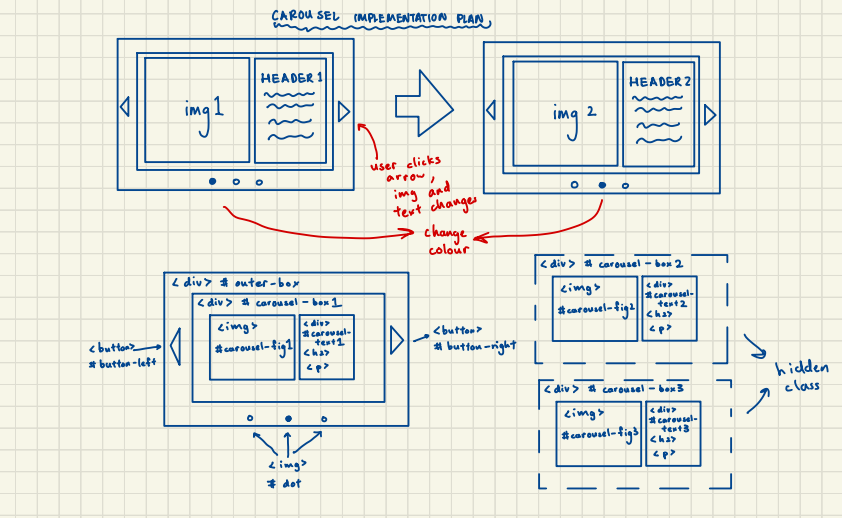 CAROUSEL IMPLEMENTATION PLAN
img 1
HEADER 1
img 2
HEADER 2
user clicks
arrow,
img and
text changes
change
colour
<div> # outer-box
<div> # carousel-box1
<img>
#carousel-fig1
<div>
#carousel-
text1
<h2>
<p>
<button>
# button-left
<button>
# button-right
<img>
# dot
<div> # carousel-box2
<img>
#carousel-fig2
<div>
#carousel-
text2
<h2>
<p>
<div> # carousel-box3
<img>
#carousel-fig3
<div>
#carousel-
text3
<h2>
<p>
hidden
class